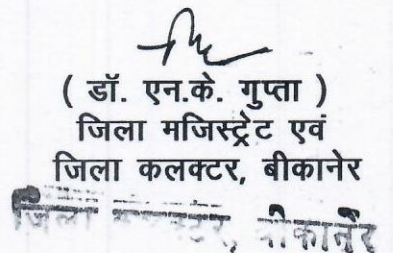 ( डॉ. एन.के. गुप्ता )
जिला मजिस्ट्रेट एवं
जिला कलक्टर, बीकानेर
जिला कलक्टर, बीकानेर